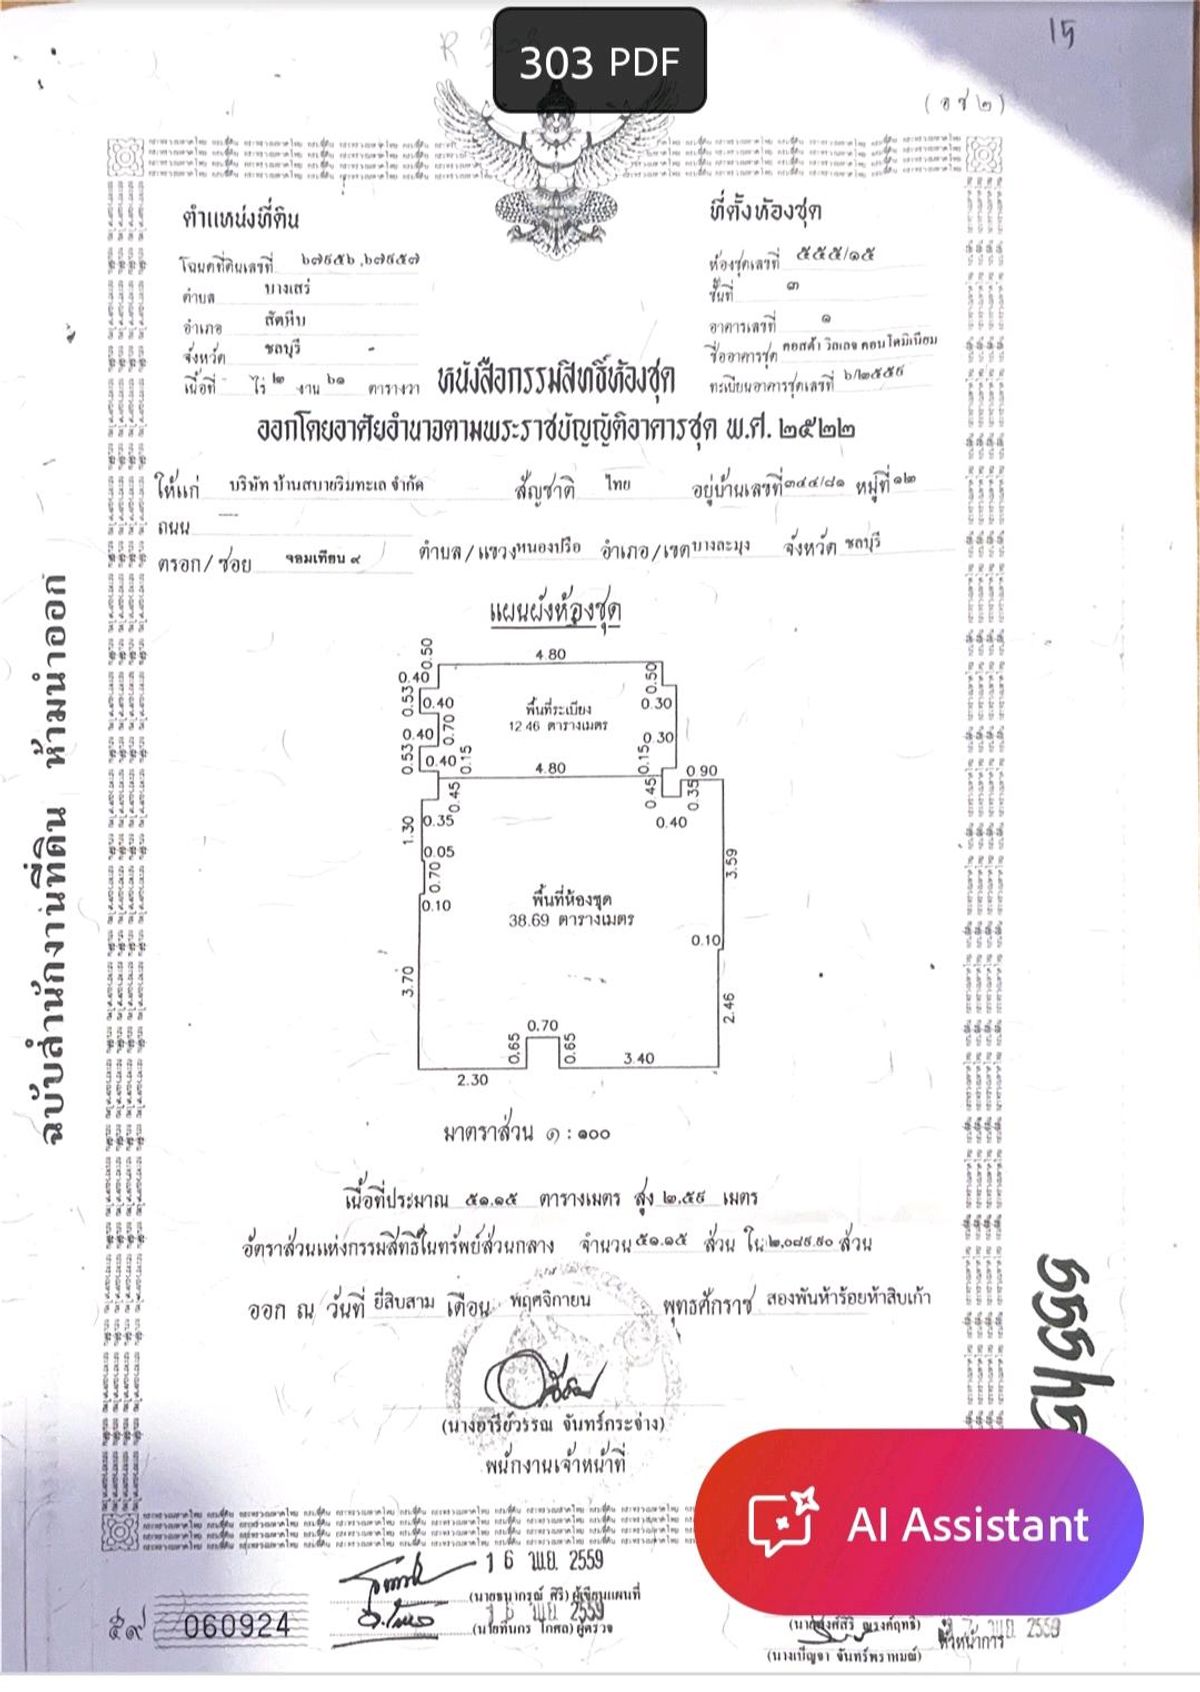 303 PDF
15
(อช ๒)
ตำแหน่งที่ดิน
โฉนดที่ดินเลขที่ ๖๗๙๕๖ ,๖๗๙๕๗
ตำบล บางเสร่
อำเภอ สัตหีบ
จังหวัด ชลบุรี -
เนื้อที่ - ไร่ ๒ งาน ๖๑ ตารางวา
ที่ตั้งห้องชุด
ห้องชุดเลขที่ ๕๕๕/๑๕
ชั้นที่ ๓
อาคารเลขที่ ๑
ชื่ออาคารชุด คอสต้า วิลเลจ คอนโดมิเนียม
ทะเบียนอาคารชุดเลขที่ ๖/๒๕๕๙
หนังสือกรรมสิทธิ์ห้องชุด
ออกโดยอาศัยอำนาจตามพระราชบัญญัติอาคารชุด พ.ศ. ๒๕๒๒
ให้แก่ บริษัท บ้านสบายริมทะเล จำกัด สัญชาติ ไทย อยู่บ้านเลขที่ ๓๔๔/๘๑ หมู่ที่ ๑๒
ถนน —
ตรอก/ซอย จอมเทียน ๙ ตำบล/แขวง หนองปรือ อำเภอ/เขต บางละมุง จังหวัด ชลบุรี
แผนผังห้องชุด
0.50 4.80
0.40 0.50
0.53 0.40 พื้นที่ระเบียง 0.30
0.40 0.70 12.46 ตารางเมตร 0.30
0.53 0.40 0.15 4.80 0.15 0.90
0.45 0.45 0.35
1.30 0.35 0.40
0.05 3.59
0.70
0.10 พื้นที่ห้องชุด
38.69 ตารางเมตร
0.10
3.70 2.46
0.70
0.65 0.65 3.40
2.30
มาตราส่วน ๑ : ๑๐๐
เนื้อที่ประมาณ ๕๑.๑๕ ตารางเมตร สูง ๒.๕๙ เมตร
อัตราส่วนแห่งกรรมสิทธิ์ในทรัพย์ส่วนกลาง จำนวน ๕๑.๑๕ ส่วน ใน ๒,๐๘๙.๙๐ ส่วน
ออก ณ วันที่ ยี่สิบสาม เดือน พฤศจิกายน พุทธศักราช สองพันห้าร้อยห้าสิบเก้า
(นางอารีย์วรรณ จันทร์กระจ่าง)
พนักงานเจ้าหน้าที่
ฉบับสำนักงานที่ดิน ห้ามนำออก
AI Assistant
16 พ.ย. 2559
(นายธนากรณ์ ศิริ) ผู้เขียนแผนที่
16 พ.ย. 2559
ผู้ตรวจ
๕๙ 060924
พ.ย. 2559
หัวหน้าการ
(นางเบ็ญจา จันทร์พราหมณ์)